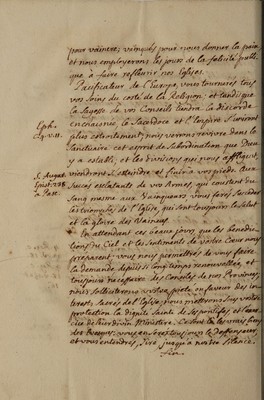 pour vaincre; vainqués pour nous donner la paix
et nous employerons les jours de la felicité publi
que à faire refleurir nos Eglises.
Pacificateur de l'Europe, vous tournerés tous
vos soins du costé de la Religion; et tandis que
la sagesse de vos Conseils tiendra la discorde
enchaisnée, le Sacerdoce et l'Empire s'uniront
plus estroitement; nous verrons revivre dans le
Sanctuaire cet esprit de Subordination que Dieu
y a establi; et les divisions qui nous affligent,
viendront s'esteindre et finir à vos pieds. Que
succès esclatants de vos Armes, qui coustent du
sang mesme aux Vainqueurs vous fassent succeder
les triomphes de l'Eglise qui sont tousjours le salut
et la gloire des Vaincus.
En attendant ces beaux jours, que les benedic
tions du Ciel et les sentiments de vostre Coeur nous
preparent, vous nous permettrés de vous faire
la demande depuis si long temps renouvellée, et
tousjours necessaire des Conciles de nos Provinces,
nous solliciterons vostre pieté en faveur des in
terests sacrés de l'Eglise, nous mettrons sous vostre
protection la dignité sainte de ses pontifes, et
de leur divin Ministere.
des Evesques; vous en serés tous jours le deffenseur
et vous entendrés, Sire jusqu'à nostre silence.
fin.
Eph.
S. August.
Epist.